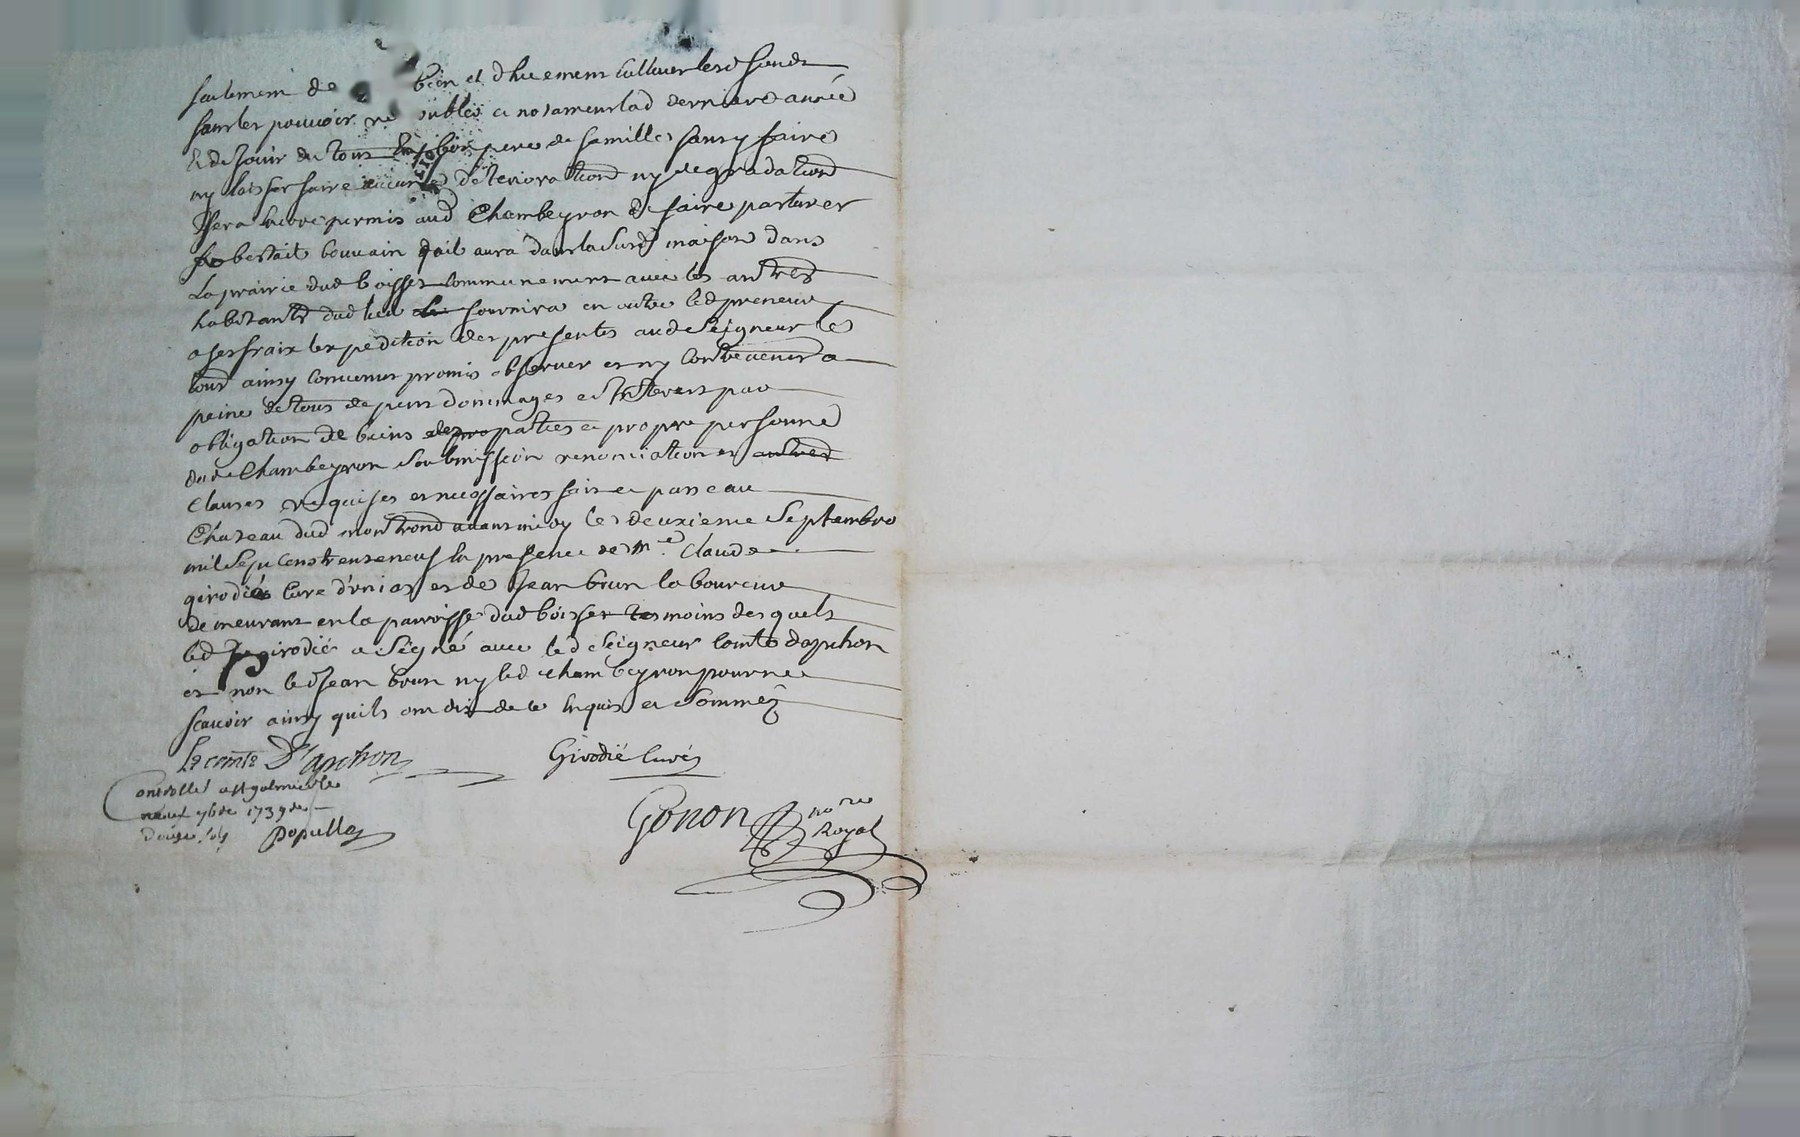 seulement de bien et dhuement cultiver lesd fonds
sans les pouvoir re oubles et notament lad derniere année
et de jouir du tout en bon pere de famille sans y faire
ny laisser faire aucune deterioration ny degradation
sera encore permis aud Chambeyron de faire parturer
le bestail bouvain quil aura dans la susd maison dans
La prairie dud boisset communement avec les autres
habitants dud lieu fournira en outre led preneur
a ses frais lexpedition des presentes aud Seigneur les
tout ainsy convenu promis observer et ny contrevenir a
peine de tous depens dommages et interets par
obligation de biens des parties et propre personne
dud Chambeyron soubmission renonciation et autres
clauses requises et necessaires fait et passe au
Chateau dud montrond avant midy le deuxieme Septembre
mil Sept cens trente neuf la presence de Mre Claude
girodié Curé d'unias et de Jean brun laboureur
demeurant en la parroisse dud boisset tesmoins desquels
led girodié a Signé avec led Seigneur Comte dapchon
et non led Jean brun ny led chambeyron pour ne
scavoir ainsy quils ont dit de ce enquis et sommés
le comte D'apchon
Girodié Curé
Controllé a St galmier le
neuf 7bre 1739 Reçu
douze sols Populle
Gonon nore
Royal